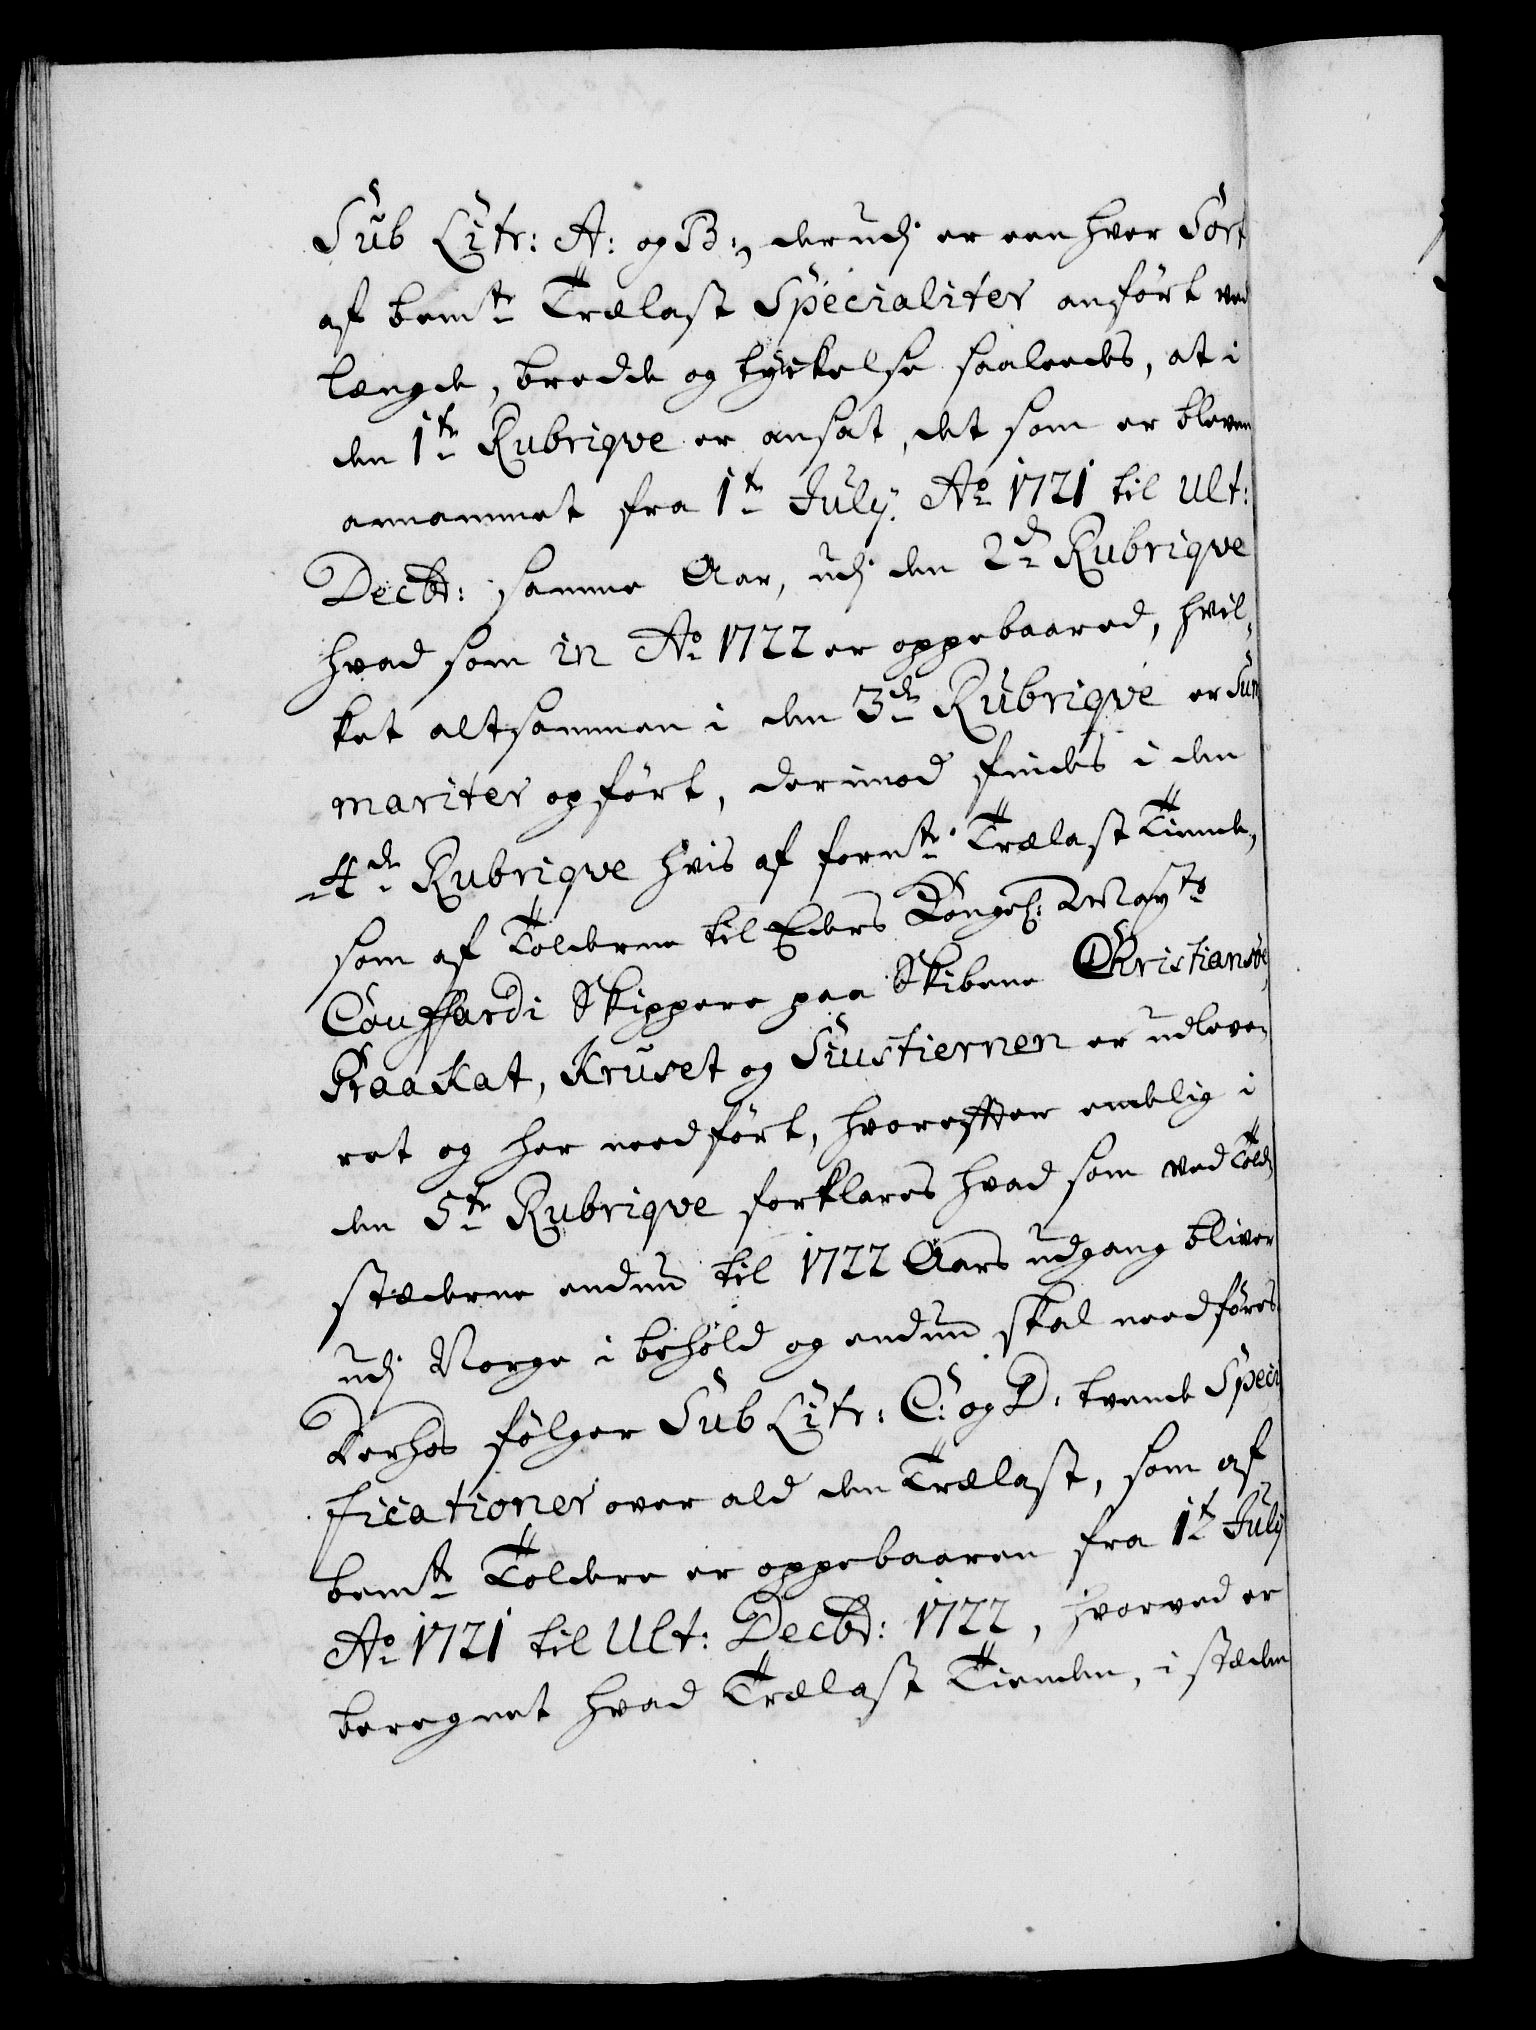 Sub Litr: A: og B:, derudj er een hver Sort
af bemte Trælast Specialiter anført ved
længde, bredde og tyckelse saaledes, at i
den 1te Rubriqve er ansat, det som er bleven
annammet fra 1te July Ao 1721 til ult:
Decbr: samme Aar, udj den 2de Rubriqve
hvad som in Ao 1722 er oppebaared, hvil-
ket altsammen i den 3de Rubriqve er Sum
mariter opført, derimod findes i den
4de Rubriqve hvis af formte Trælast Tiende,
som af Tolderne til Eders Kongel: Mayts
Couffardi Skippere paa Skibene Christiansøe,
Kraakat, Kruset og Siustiernen er udleve-
ret og her needført, hvorefter endelig i
den 5te Rubriqve forklares hvad som ved Told-
stæderne endnu til 1722 Aars udgang bliver
udj Norge i behold og endnu skal needføres.
Derhos følger Sub Litr: C: og D: tvende Speci
ficationer over ald den Trælast, som af
bemte Toldere er oppebaaren fra 1te July
Ao 1721 til Ult: Decbr: 1722, hvorved er
beregnet hvad Trælast Tienden, i stæden